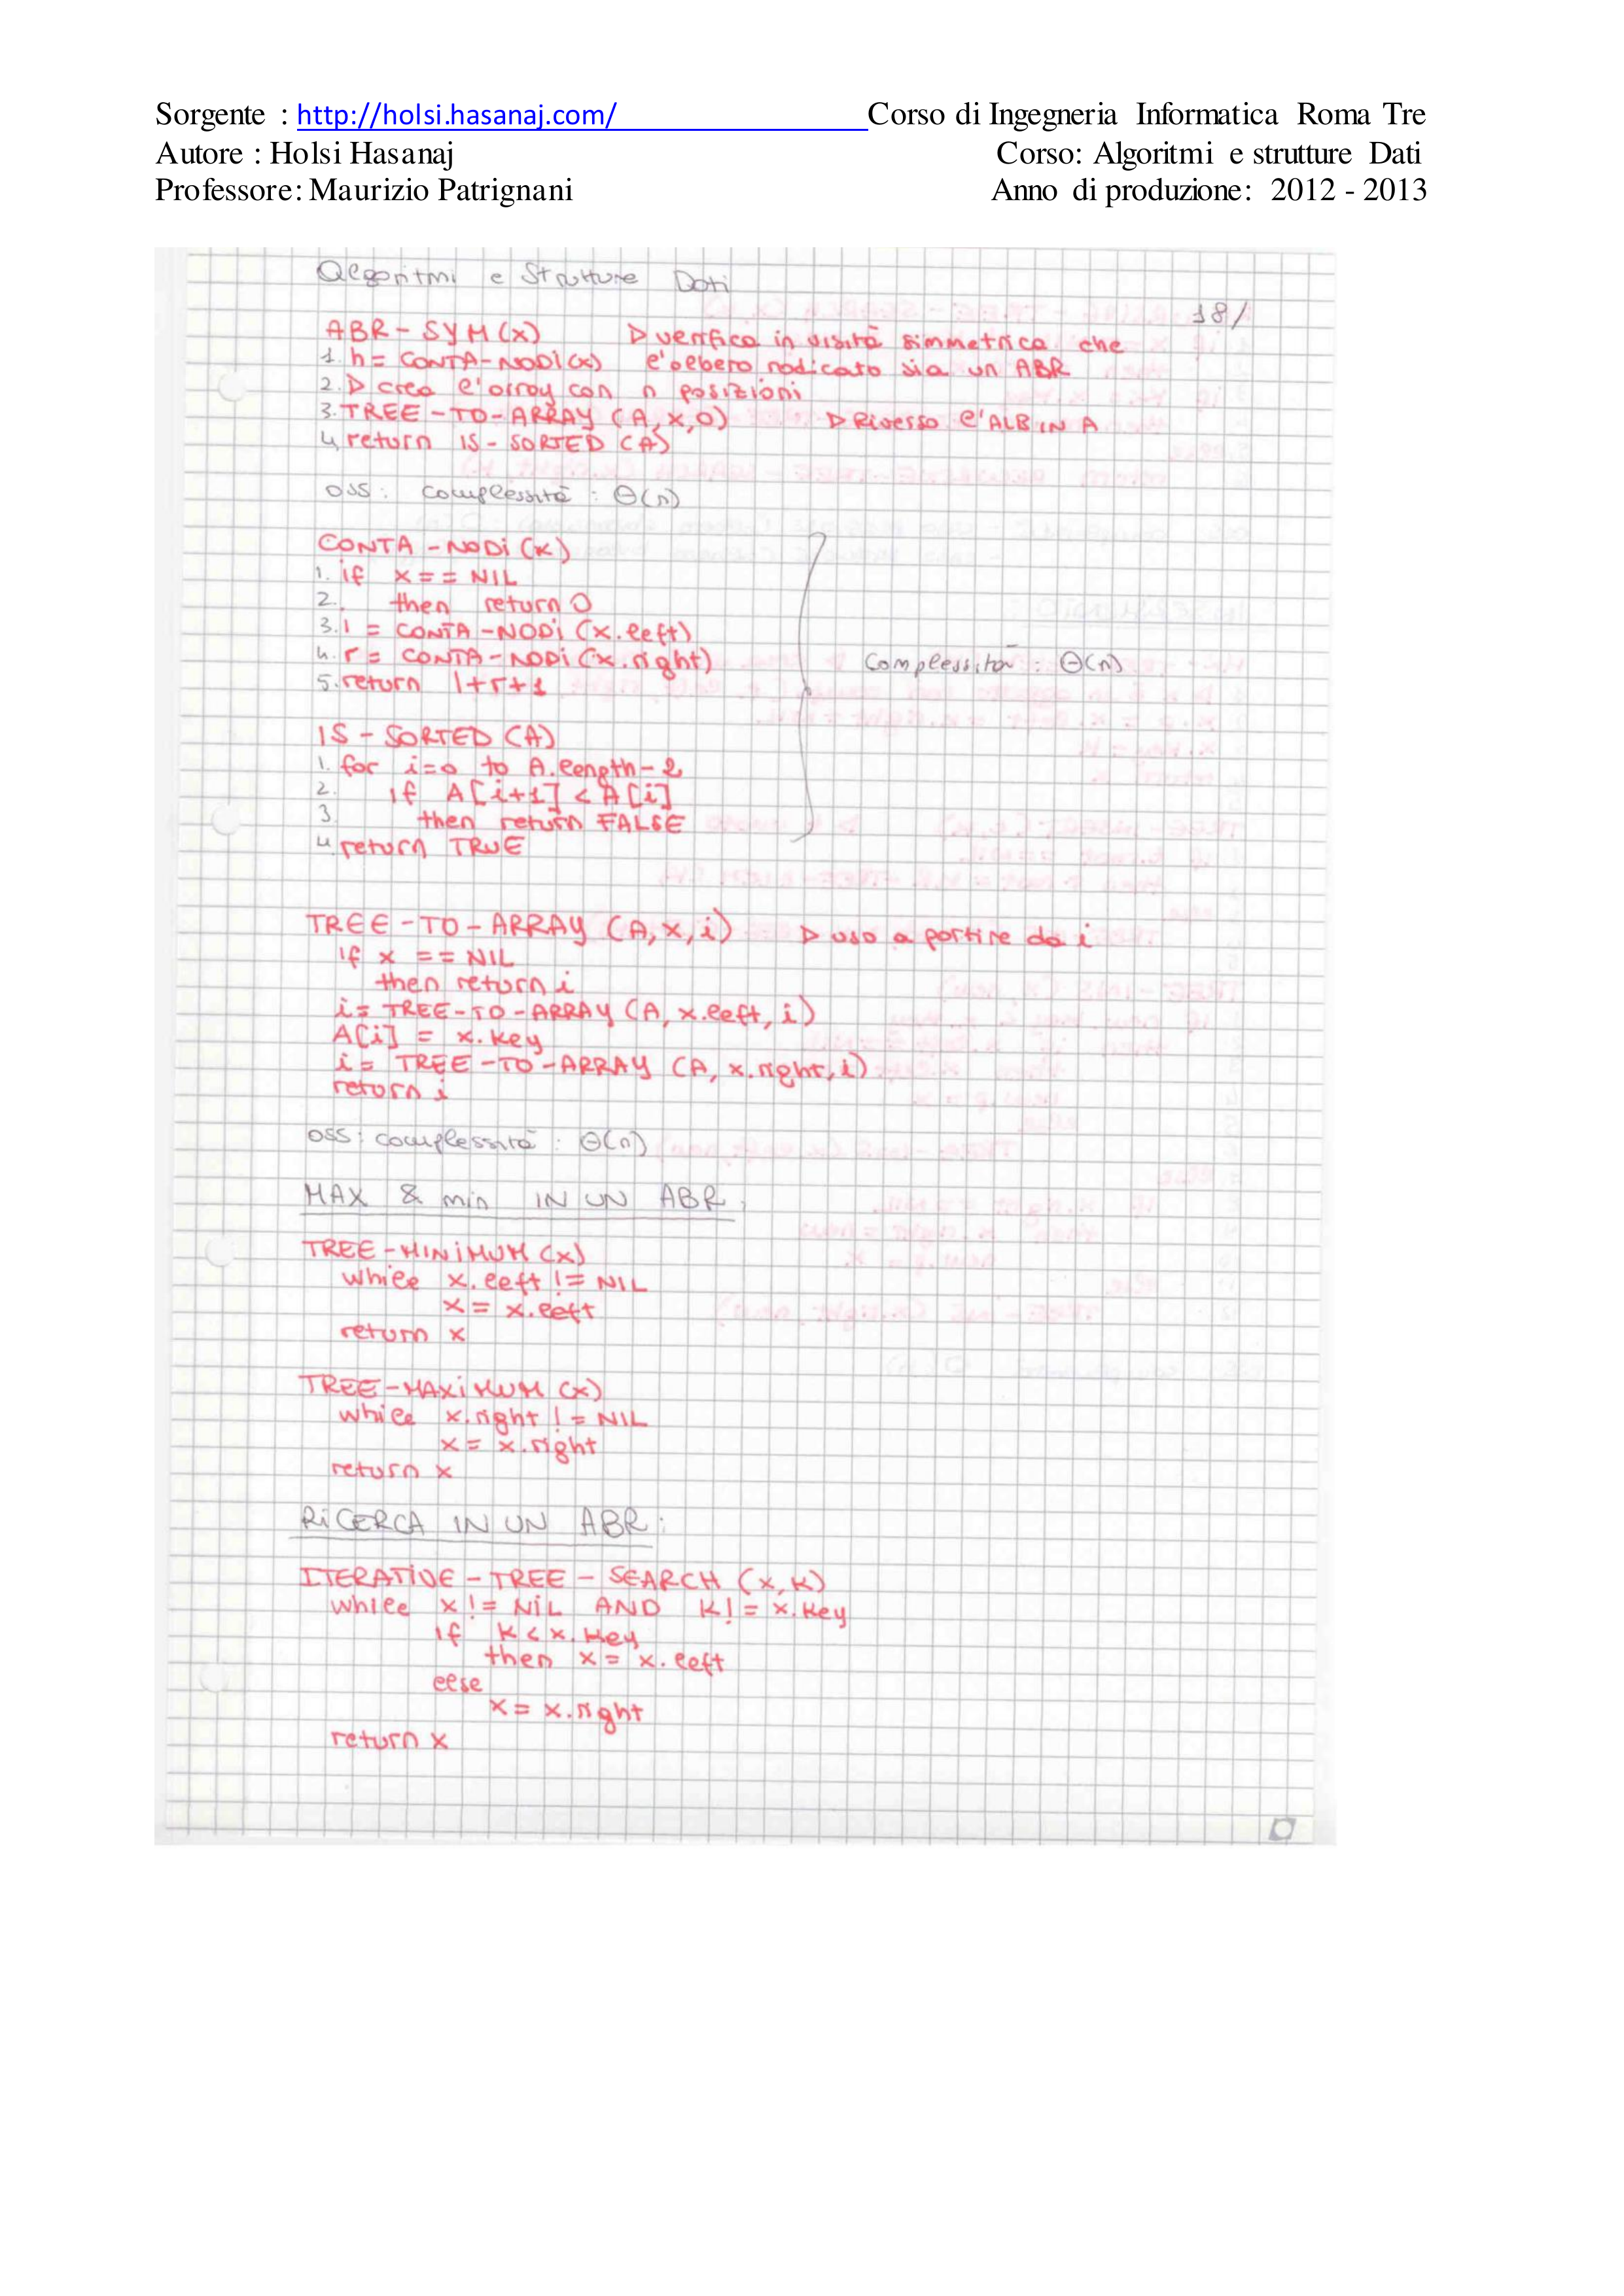 Sorgente : http://holsi.hasanaj.com/ Corso di Ingegneria Informatica Roma Tre
Autore : Holsi Hasanaj Corso: Algoritmi e strutture Dati
Professore: Maurizio Patrignani Anno di produzione: 2012 - 2013
Algoritmi e Strutture Dati
18/
ABR-SYM(x) ▷ verifica in visità simmetrica che
1. n = CONTA-NODi(x) l'albero radicato sia un ABR
2. ▷ crea l'array con n posizioni
3. TREE-TO-ARRAY (A,x,0) ▷ Riverso l'ALB IN A
4. return IS-SORTED (A)
oss: complessità : Θ(n)
CONTA-NODi (x)
1. if x == NIL
2. then return 0
3. l = CONTA-NODi (x.left)
4. r = CONTA-NODi (x.right)
5. return l+r+1
Complessità : Θ(n)
IS-SORTED (A)
1. for i=0 to A.length-2
2. if A[i+1] < A[i]
3. then return FALSE
4. return TRUE
TREE-TO-ARRAY (A,x,i) ▷ uso a partire da i
if x == NIL
then return i
i= TREE-TO-ARRAY (A, x.left, i)
A[i] = x.key
i= TREE-TO-ARRAY (A, x.right, i)
return i
oss: complessità : Θ(n)
MAX & min IN UN ABR:
TREE-MINiMUM (x)
while x.left != NIL
x = x.left
return x
TREE-MAXiMUM (x)
while x.right != NIL
x = x.right
return x
RiCERCA IN UN ABR:
ITERATiVE-TREE-SEARCH (x,k)
while x != NiL AND k != x.key
if k < x.key
then x = x.left
else
x = x.right
return x